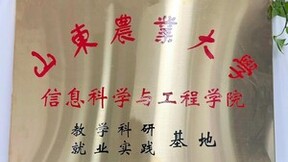 山東農業大學
信息科学与工程学院
教学科研
就业实践
基地